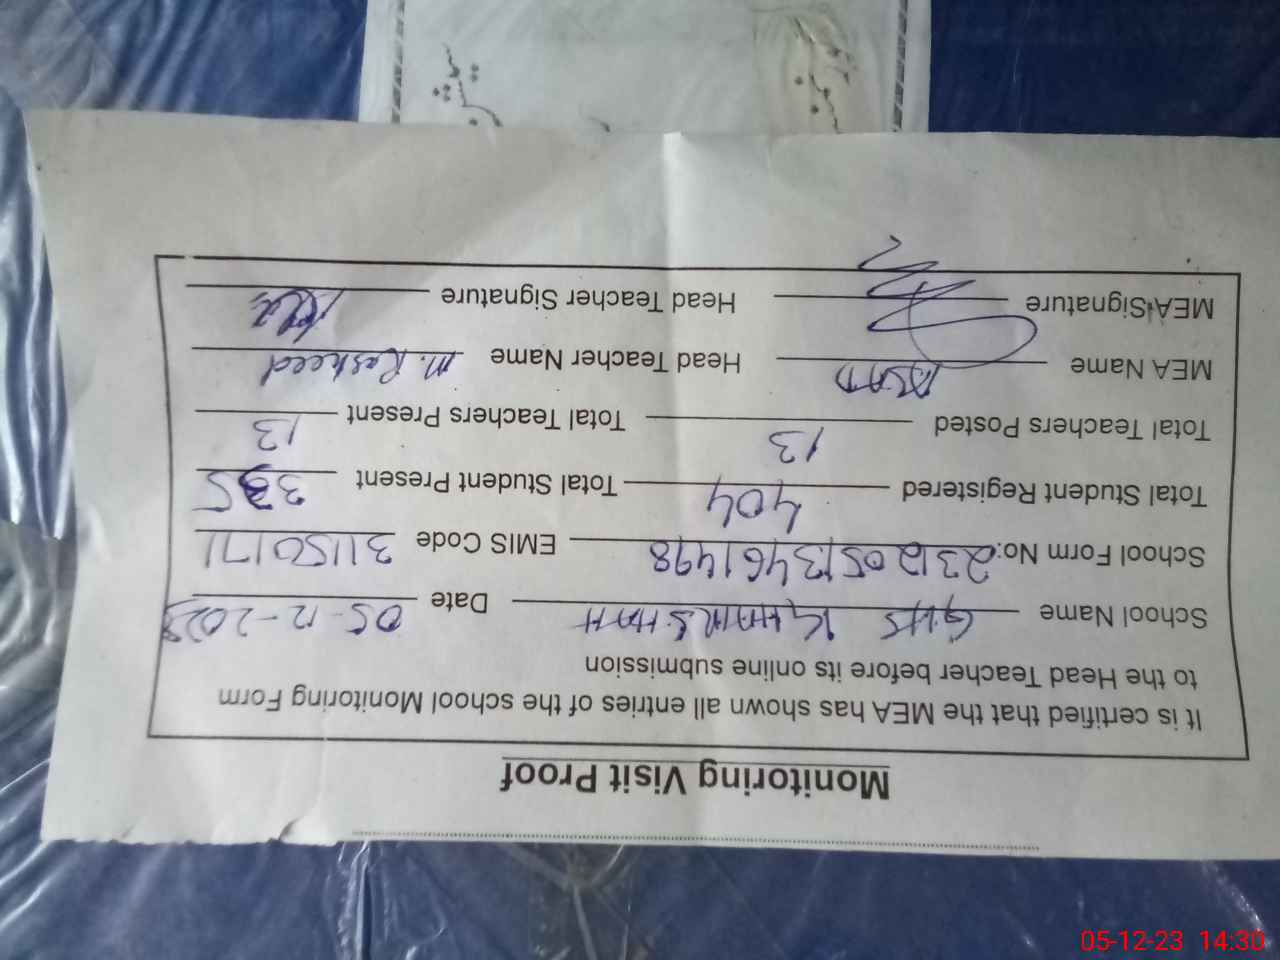 Monitoring Visit Proof
It is certified that the MEA has shown all entries of the school Monitoring Form
to the Head Teacher before its online submission
School Name GHS KHAIRSHAH Date 05-12-2023
School Form No: 23120513461498 EMIS Code 31150171
Total Student Registered 404 Total Student Present 335
Total Teachers Posted 13 Total Teachers Present 13
MEA Name ASAD Head Teacher Name M. Rasheed
MEA Signature Head Teacher Signature
05-12-23 14:30